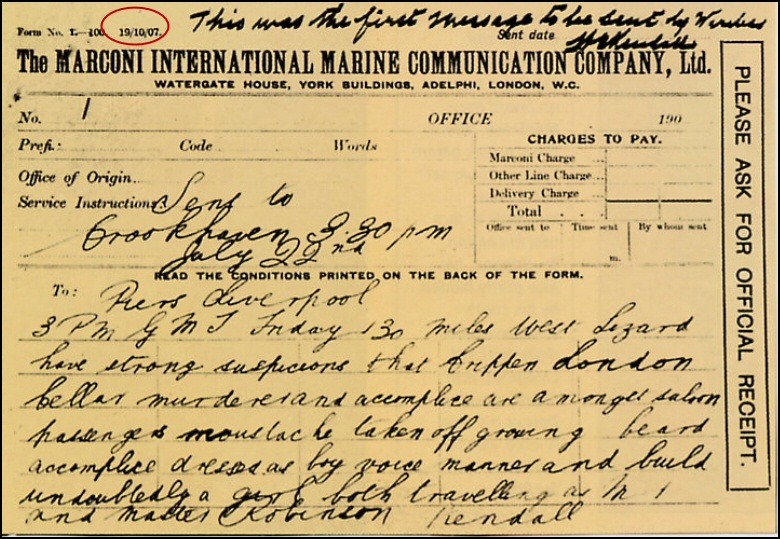 This was the first message to be sent by Wireless
Form No. 1.—100. 19/10/07. Sent date
H G Kendall
The MARCONI INTERNATIONAL MARINE COMMUNICATION COMPANY, Ltd.
WATERGATE HOUSE, YORK BUILDINGS, ADELPHI, LONDON, W.C.
No. 1 OFFICE 190
Prefi: Code Words
CHARGES TO PAY.
Marconi Charge ...
Other Line Charge...
Delivery Charge ...
Total . . .
Office sent to Time sent By whom sent
m.
Office of Origin...
Service Instructions: Sent to
Crookhaven 3.30 pm
July 22nd
READ THE CONDITIONS PRINTED ON THE BACK OF THE FORM.
To: Piers Liverpool
3 PM G M T Friday 130 miles West Lizard
have strong suspicions that Crippen London
Cellar murderer and accomplice are amongst saloon
passengers moustache taken off growing beard
accomplice dressed as boy voice manner and build
undoubtedly a girl both travelling as Mr
and master Robinson Kendall
PLEASE ASK FOR OFFICIAL RECEIPT.